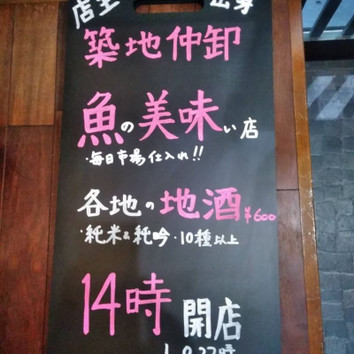 店主
築地仲卸
魚の美味い店
・毎日市場仕入れ!!
各地の地酒¥600
・純米&純吟・10種以上
14時開店